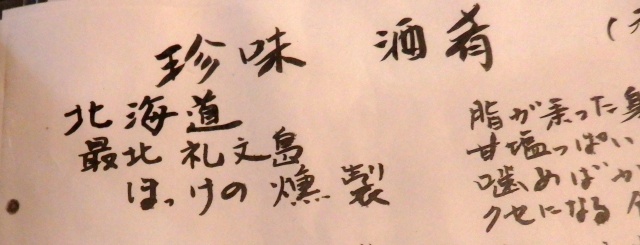 珍味 酒肴
北海道
最北 礼文島
ほっけの燻製
脂が乗った
甘塩っぱい
噛めばか
クセになる